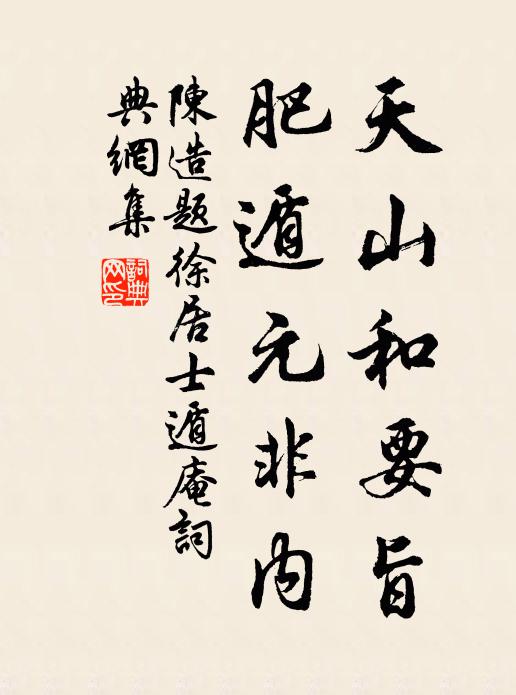 天山和要旨
肥遁元非内
陳造題徐居士遁庵詞
典網集
詞典
网印